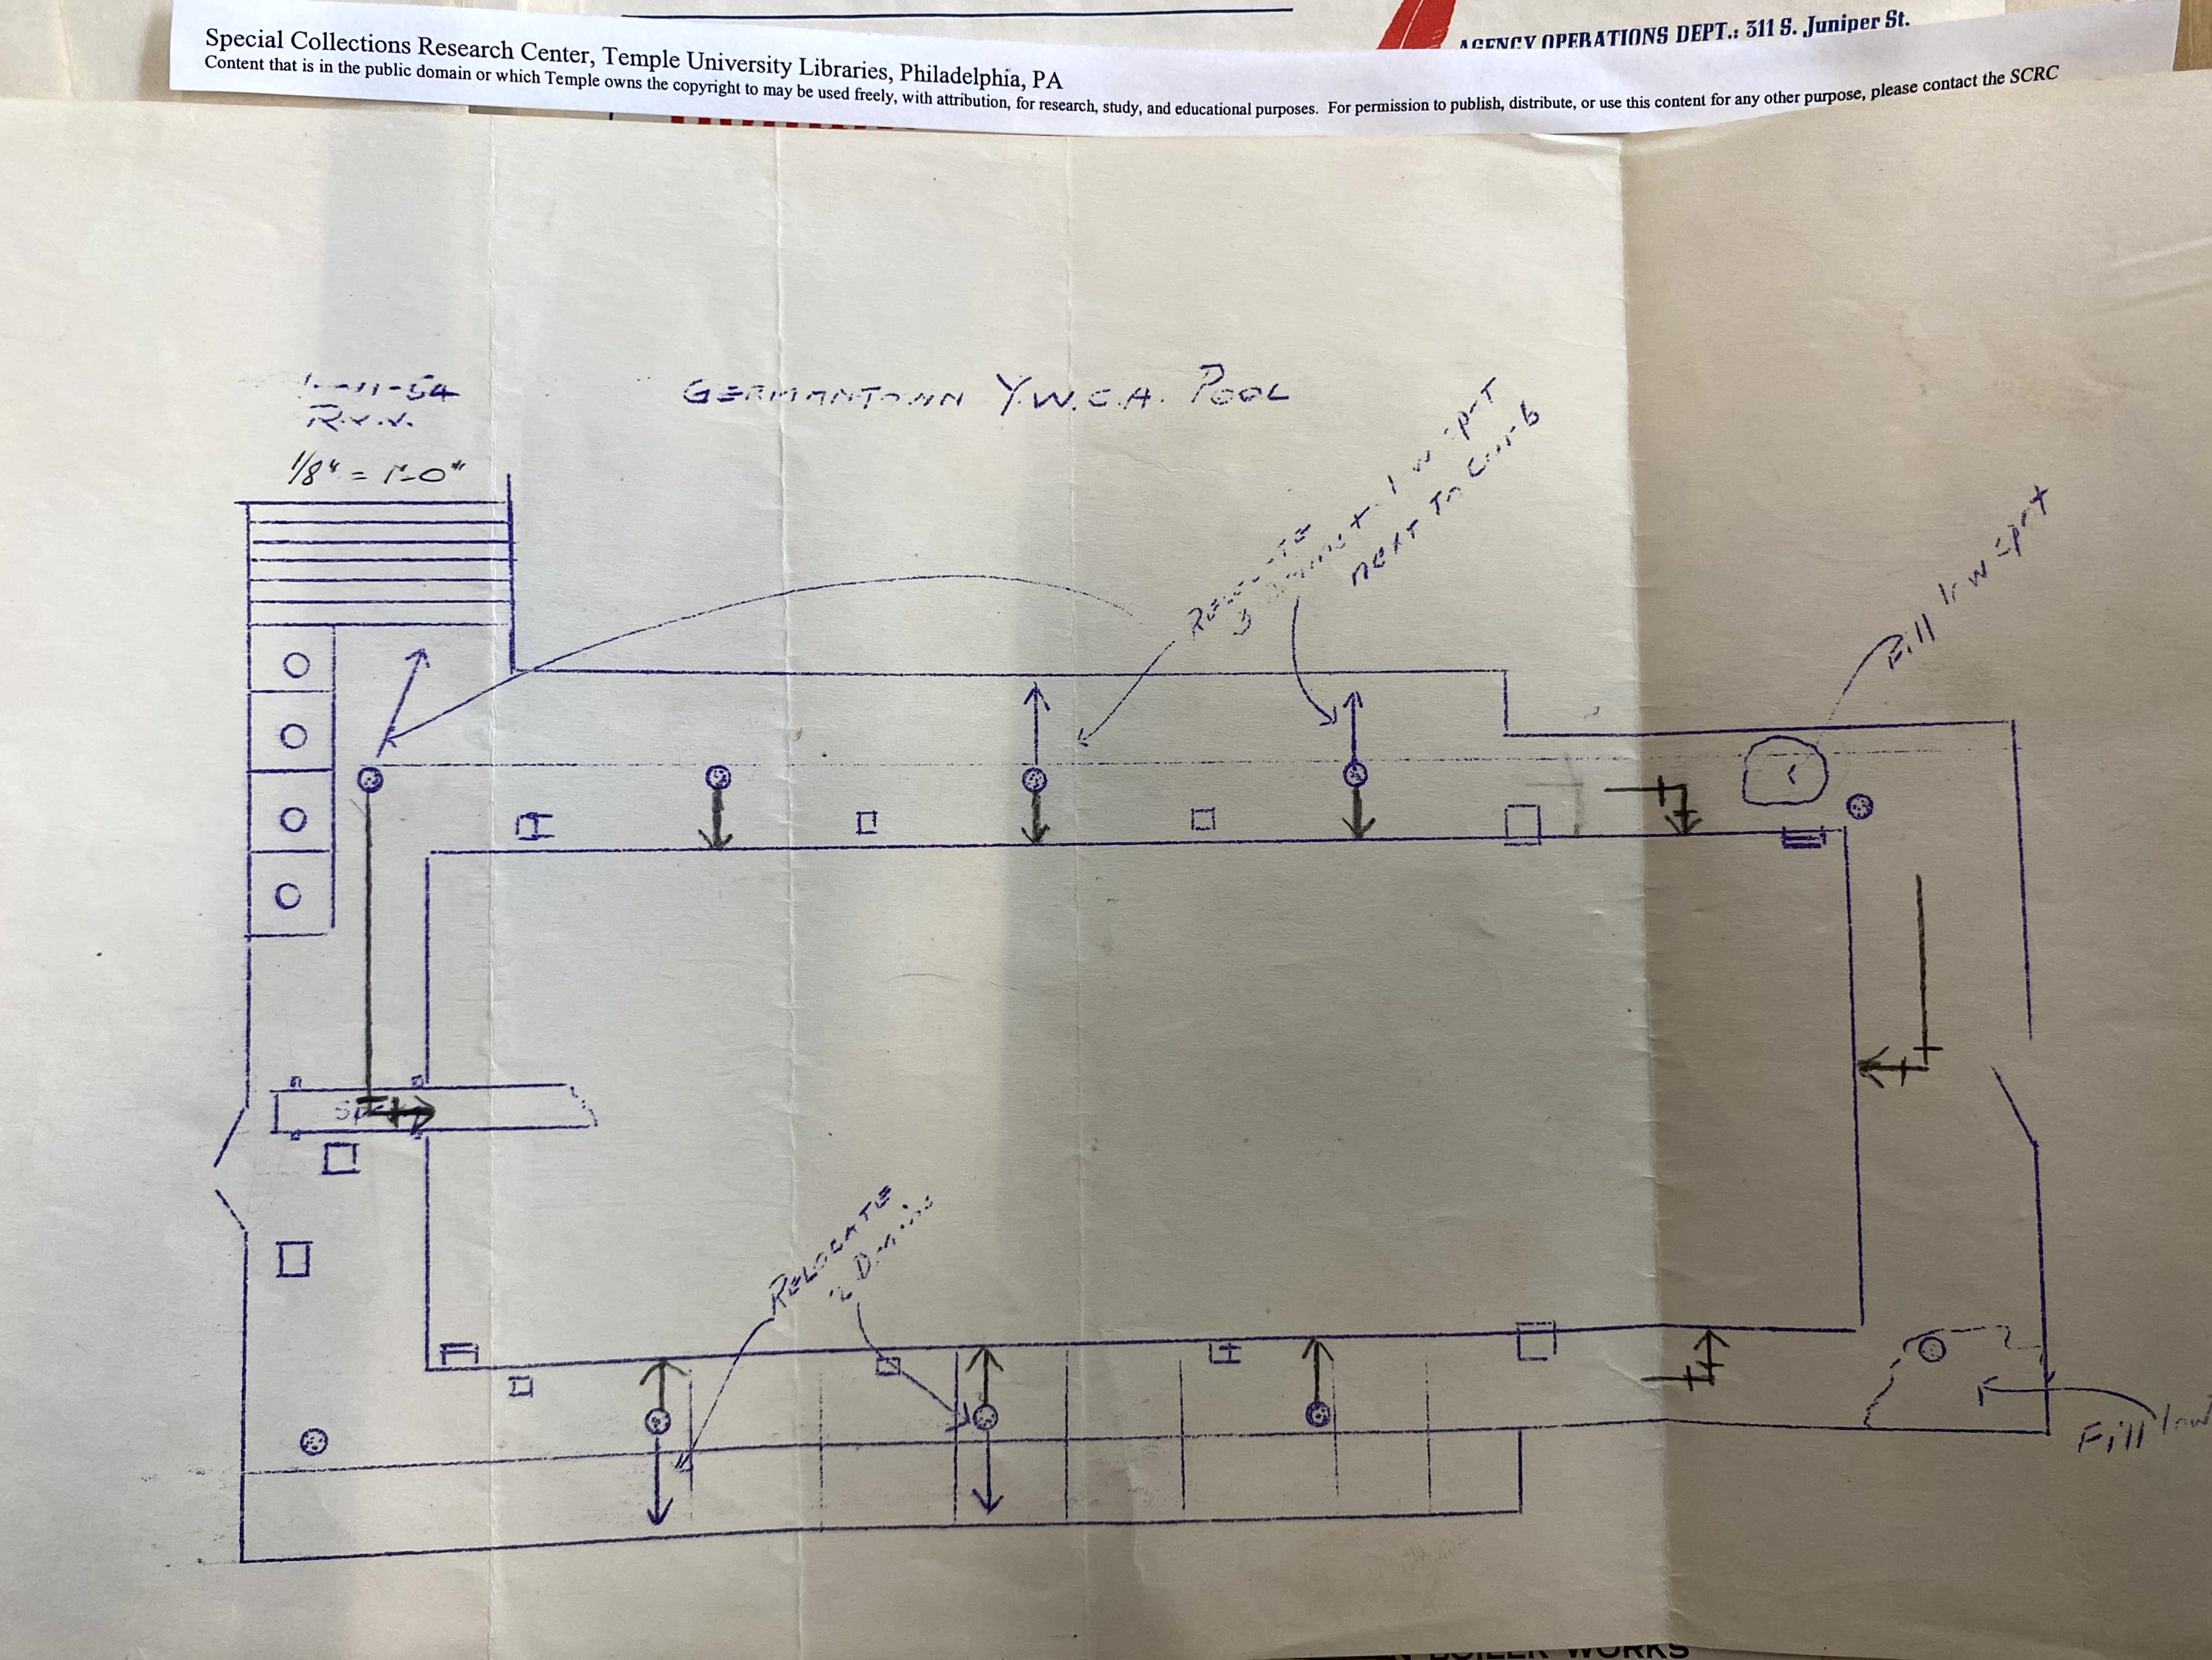 AGENCY OPERATIONS DEPT.: 311 S. Juniper St.
Special Collections Research Center, Temple University Libraries, Philadelphia, PA
Content that is in the public domain or which Temple owns the copyright to may be used freely, with attribution, for research, study, and educational purposes. For permission to publish, distribute, or use this content for any other purpose, please contact the SCRC
-11-54
1/8" = 1'-0"
GERMANTOWN Y.W.C.A. POOL
RELOCATE
3 Drains + low spot
next to curb
Fill low spot
RELOCATE
2 Drains
Fill low
BOILER WORKS